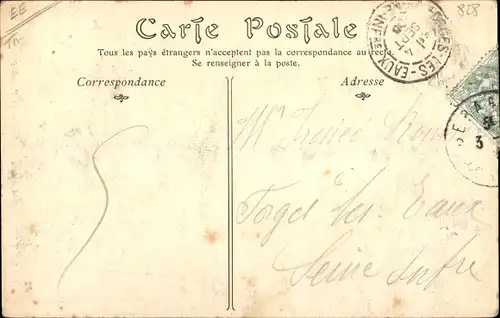 EE
828
Carte Postale
Tous les pays étrangers n'acceptent pas la correspondance au recto
Se renseigner à la poste.
Correspondance
Adresse
FORGES-LES-EAUX
Mr
Forges les Eaux
Seine Infre
3